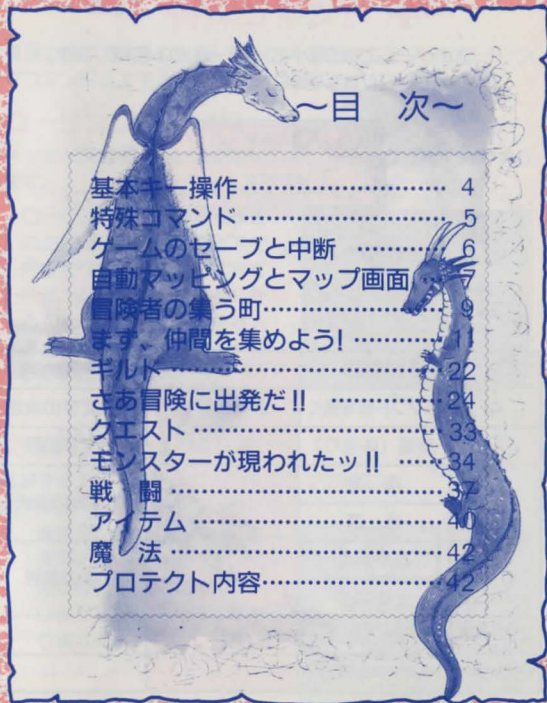 ～目　次～
基本キー操作…………………………… 4
特殊コマンド…………………………… 5
ゲームのセーブと中断 …………… 6
自動マッピングとマップ画面 … 7
冒険者の集う町……………………… 9
まず、仲間を集めよう! …………… 11
ギルド …………………………………… 22
さあ冒険に出発だ!! ……………… 24
クエスト ………………………………… 33
モンスターが現われたッ!! …… 34
戦　闘 …………………………………… 37
アイテム ………………………………… 40
魔　法 …………………………………… 42
プロテクト内容……………………… 42